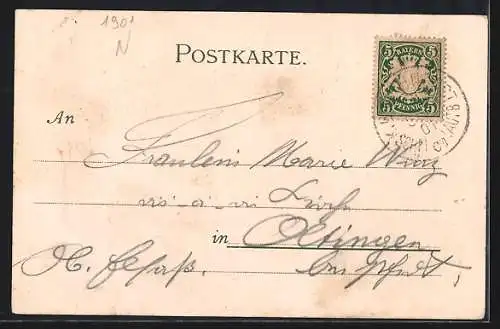 1901
N
POSTKARTE.
BAYERN
5 5
5 PFENNIG 5
An
Fräulein Marie Winz
vis-a-vi Kirche
in Oltingen
O. Elsaß. bei Pfirt,